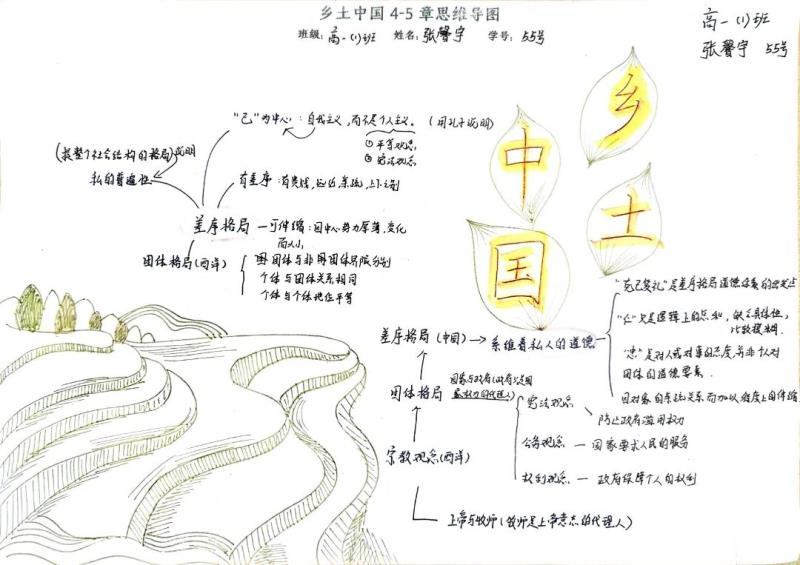 乡土中国 4-5 章思维导图
班级：高一(1)班 姓名：张馨宇 学号：55号
高一(1)班
张馨宇 55号
乡
土
中
国
"己"为中心：自我主义，而不是个人主义。（用孔子说明）
① 平等观念
② 宪法观念
(按整个社会结构的格局)说明
私的普遍性
有差序：有贵贱，远近，亲疏，上下之别
差序格局 — 可伸缩：因中心势力厚薄，变化
而大小
团体格局(西洋)
团体与非团体界限分别
个体与团体关系相同
个体与个体地位平等
"克己复礼"是差序格局道德体系的出发点
"仁"只是逻辑上的总和，缺乏具体性，
比较模糊
差序格局(中国) → 系维着私人的道德
"忠"是对人或对事的态度，并非个人对
团体的道德要素.
因对象的亲疏关系而加以程度上的伸缩
团体格局
国家与政府(政府只是国
家权力的代理人)
宪法观念
防止政府滥用权力
公务观念 — 国家要求人民的服务
宗教观念(西洋)
权利观念 — 政府保障个人的权利
上帝与牧师(牧师是上帝意志的代理人)